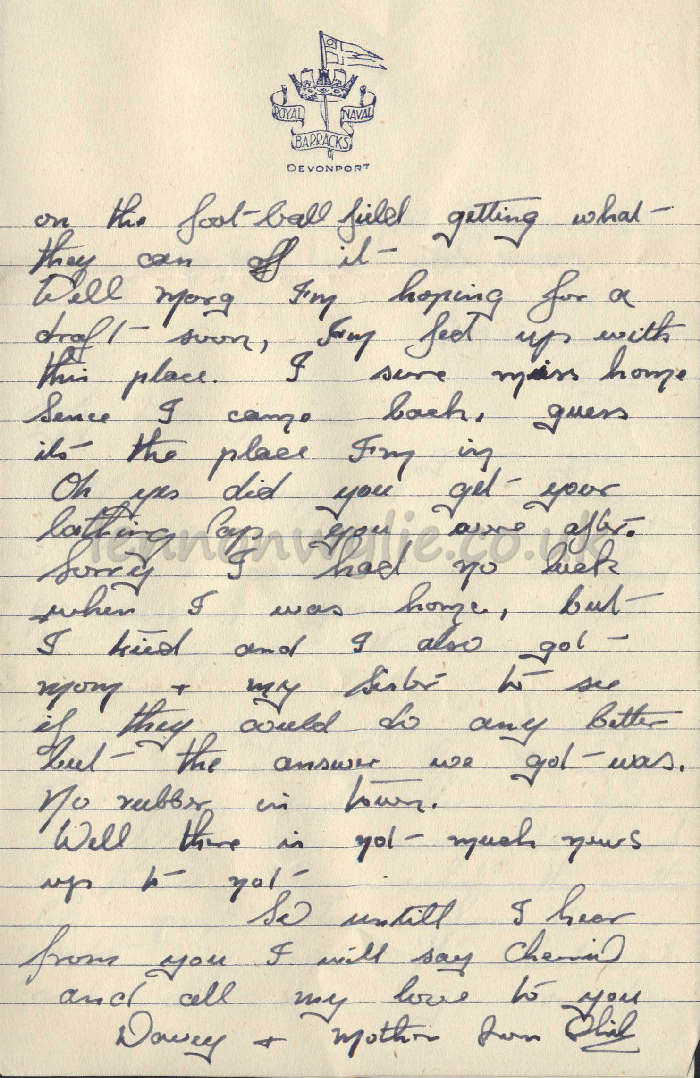 ROYAL NAVAL
BARRACKS
DEVONPORT
on the foot-ball field getting what
they can off it
Well Morg I'm hoping for a
draft soon, I'm fed up with
this place. I sure miss home
Sence I came back, guess
its the place I'm in
Oh yes did you get your
bathing Cap you were after.
Sorry I had no luck
when I was home, but
I tried and I also got
mom + my Sister to see
if they could do any better
but the answer we got was.
No rubber in town.
Well there is not much news
up to not
So untill I hear
from you I will say Cheerio
and all my love to you
+ Mother from Phil
lennanwylie.co.uk